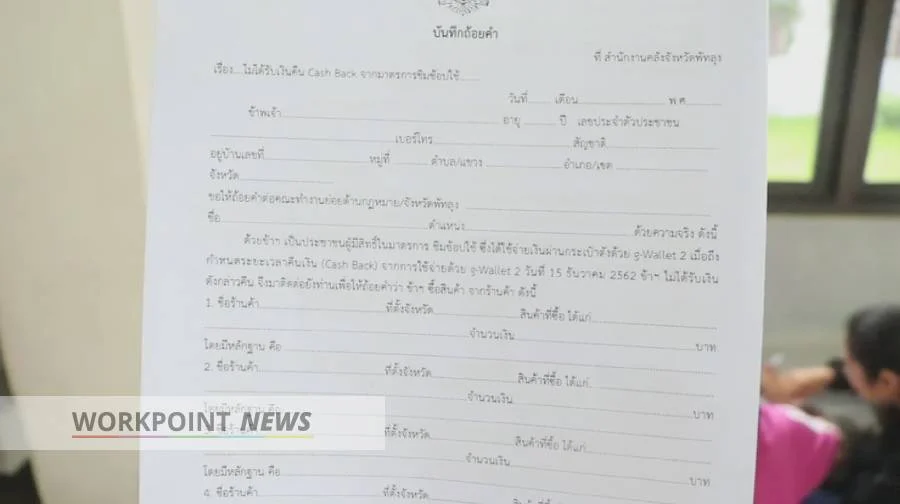 บันทึกถ้อยคำ
ที่ สำนักงานคลังจังหวัดพัทลุง
เรื่อง...ไม่ได้รับเงินคืน Cash Back จากมาตรการชิมช้อปใช้
วันที่ เดือน พ.ศ.
ข้าพเจ้า อายุ ปี เลขประจำตัวประชาชน
เบอร์โทร สัญชาติ
อยู่บ้านเลขที่ หมู่ที่ ตำบล/แขวง อำเภอ/เขต
จังหวัด
ขอให้ถ้อยคำต่อคณะทำงานย่อยด้านกฎหมาย/จังหวัดพัทลุง
ชื่อ ตำแหน่ง ด้วยความจริง ดังนี้
ด้วยข้าฯ เป็นประชาชนผู้มีสิทธิ์ในมาตรการ ชิมช้อปใช้ ซึ่งได้ใช้จ่ายเงินผ่านกระเป๋าตังด้วย g-Wallet 2 เมื่อถึง
กำหนดระยะเวลาคืนเงิน (Cash Back) จากการใช้จ่ายด้วย g-Wallet 2 วันที่ 15 ธันวาคม 2562 ข้าฯ ไม่ได้รับเงิน
ดังกล่าวคืน จึงมาติดต่อยังท่านเพื่อให้ถ้อยคำว่า ข้าฯ ซื้อสินค้า จากร้านค้า ดังนี้
1. ชื่อร้านค้า ที่ตั้งจังหวัด สินค้าที่ซื้อ ได้แก่
จำนวนเงิน บาท
โดยมีหลักฐาน คือ
2. ชื่อร้านค้า ที่ตั้งจังหวัด สินค้าที่ซื้อ ได้แก่
จำนวนเงิน บาท
โดยมีหลักฐาน คือ
3. ชื่อร้านค้า ที่ตั้งจังหวัด สินค้าที่ซื้อ ได้แก่
WORKPOINT NEWS
จำนวนเงิน บาท
โดยมีหลักฐาน คือ
4. ชื่อร้านค้า ที่ตั้งจังหวัด สินค้าที่ซื้อ ได้แก่